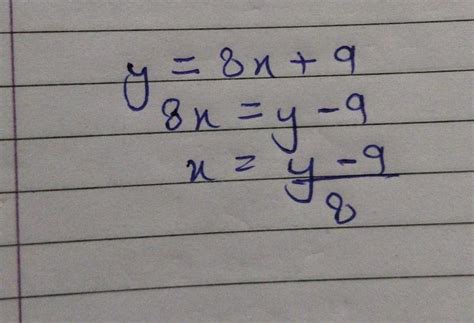 y = 8x + 9
8x = y - 9
x = y - 9 / 8